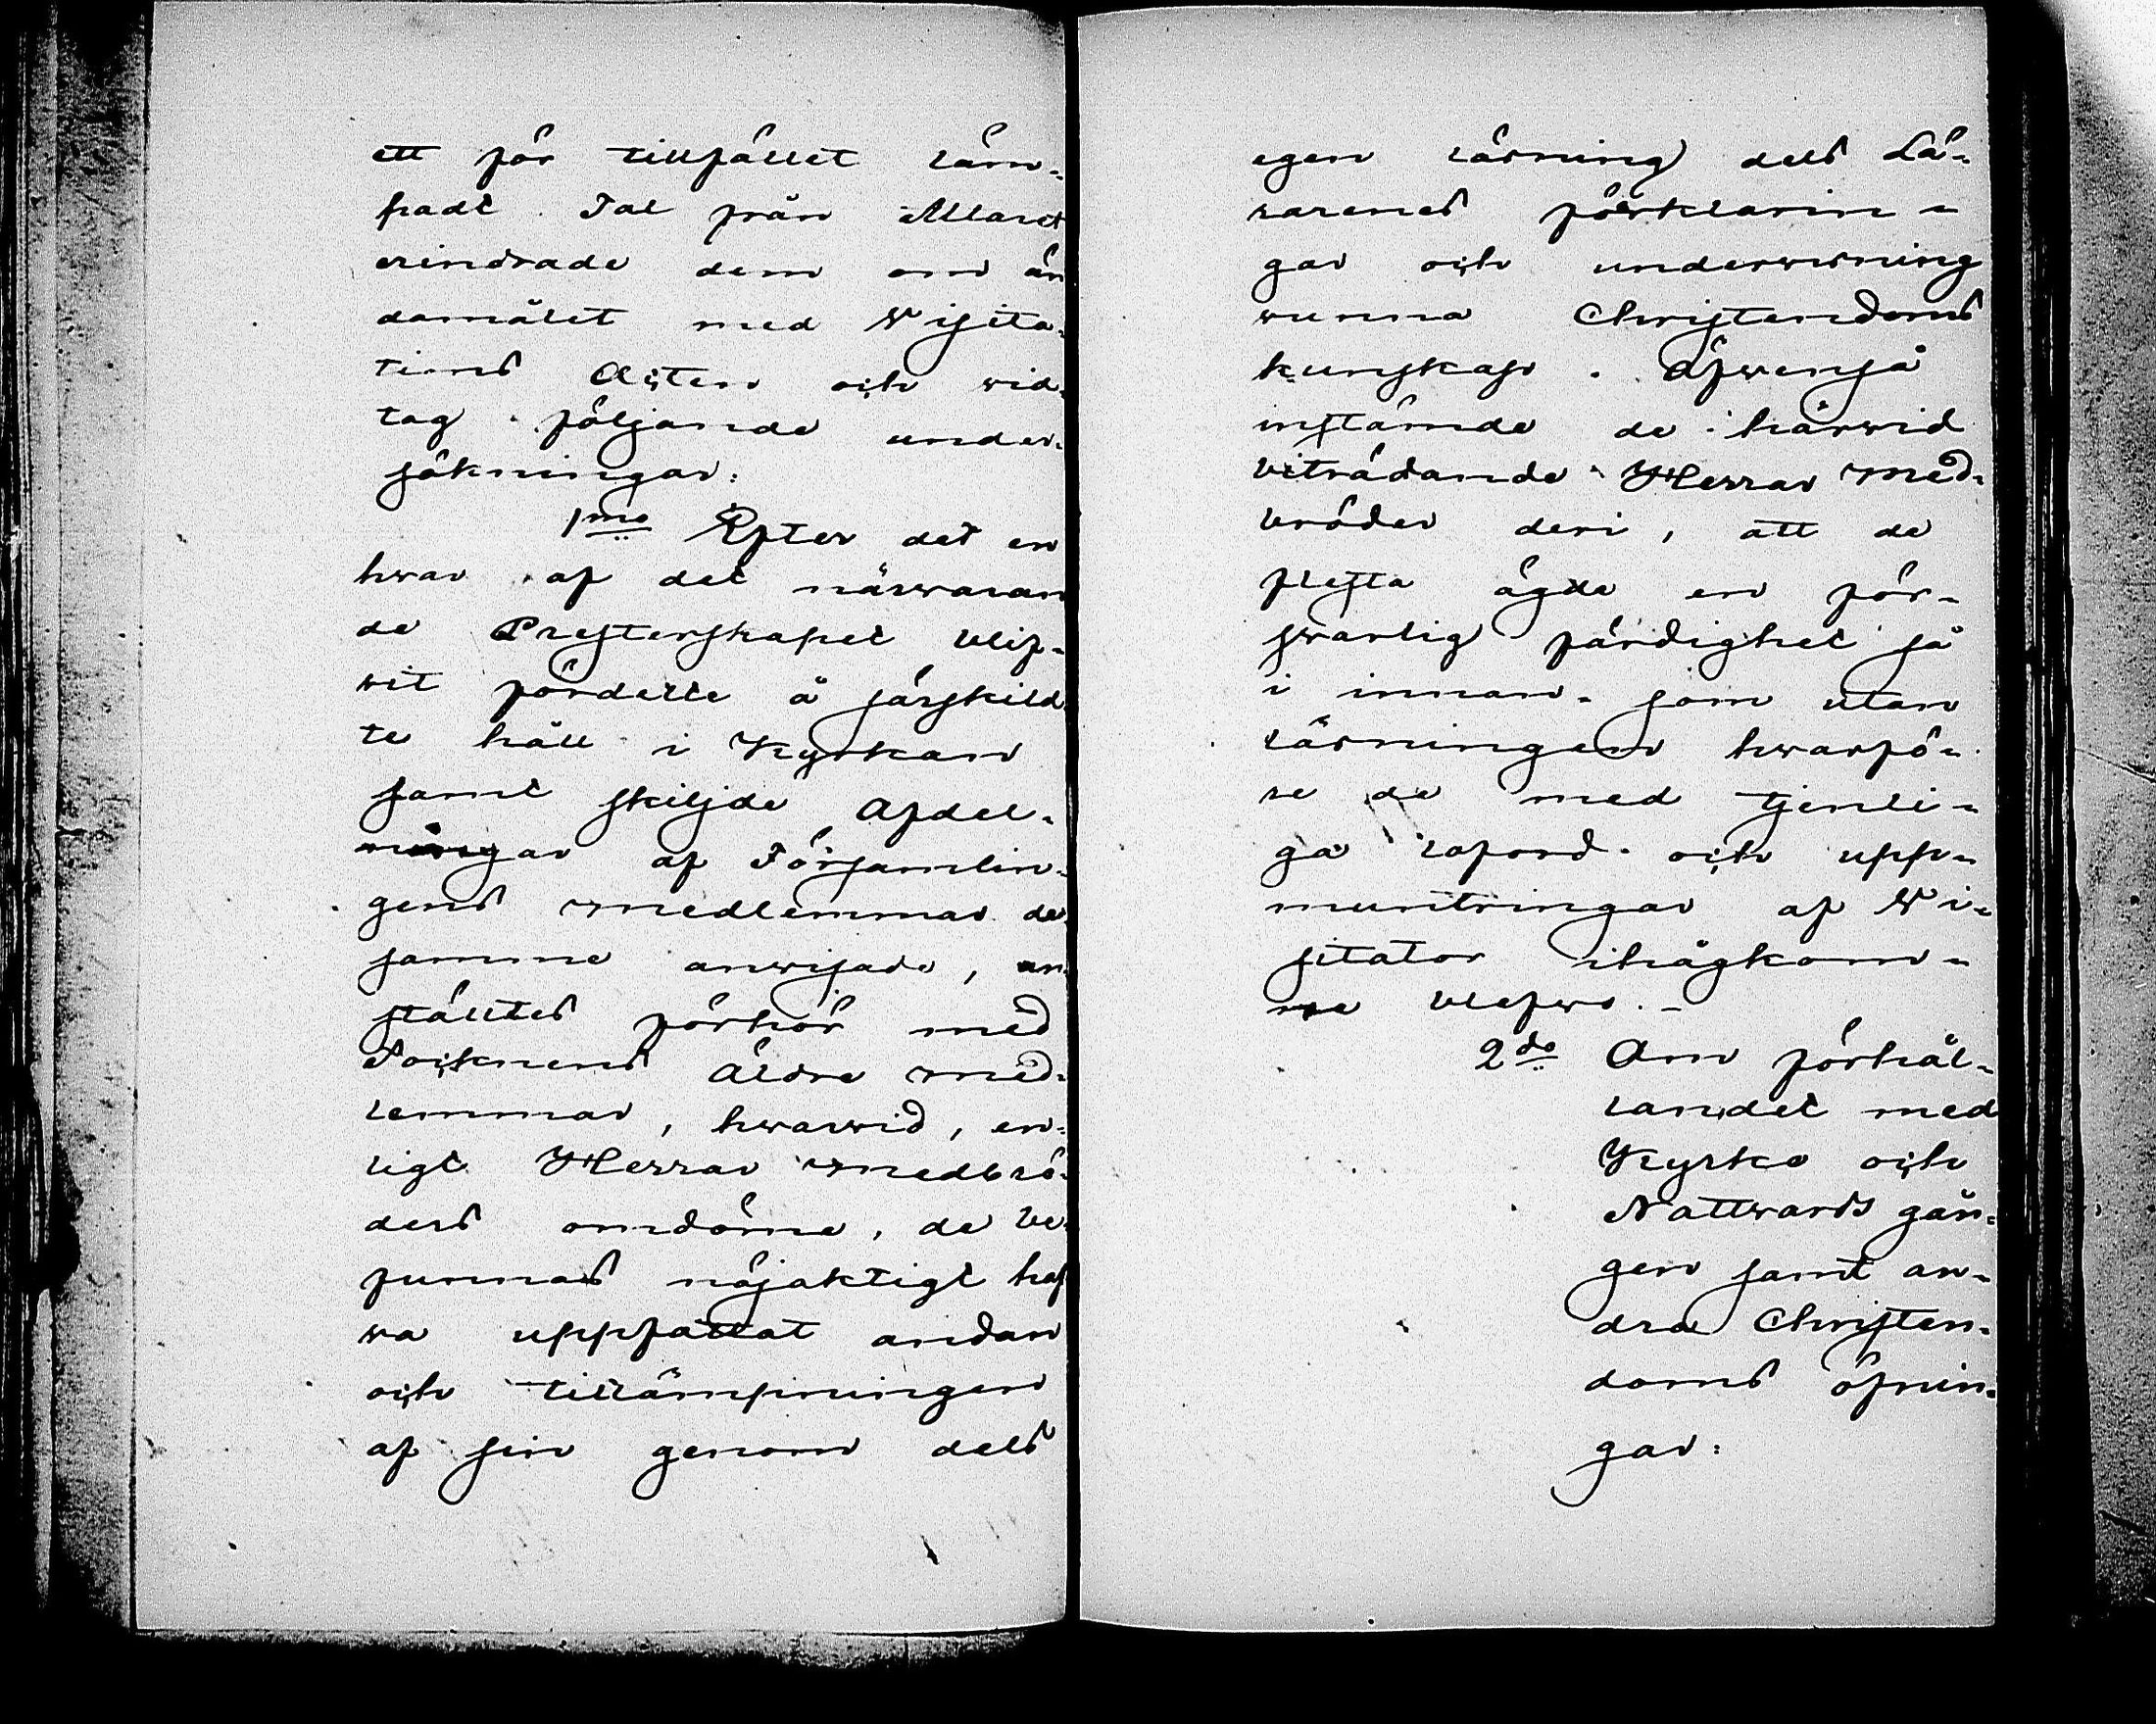 ett för tillfället läm-
padt Tal från Altaret
erindrade dem om än
damålet med Visita-
tions Acten och vid-
tog följande under-
sökningar:
1mo Efter det en
hvar af det närvaran
de Presterskapet blif-
vit fördelte å särskild
te håll i Kyrkan
samt skiljde afdel-
ningar af Församlin-
gens medlemmar de
samme anvisade, an-
ställtes förhör med
Socknens äldre med-
lemmar, hvarvid, en-
ligt Herrar medbrö-
ders omdöme, de be-
funnos nöjaktigt haf
va uppfattat andan
och tillämpningen
af sin genom dels
egen läsning dels Lä-
rarenes förklarin-
gar och undervisning
vunna Christendoms
kunskap. Äfvenså
instämde de härvid
biträdande Herrar med-
bröder deri, att de
flesta ägde en för-
svarlig färdighet så
i innan- som utan
läsningen hvarfö-
re de med tjenli-
ga loford och upp-
muntringar af Vi-
sitator ihågkom-
ne blefvo. -
2do Om förhål-
landet med
Kyrko och
Nattvards gån-
gen samt an-
dra Christen-
doms öfnin-
gar: